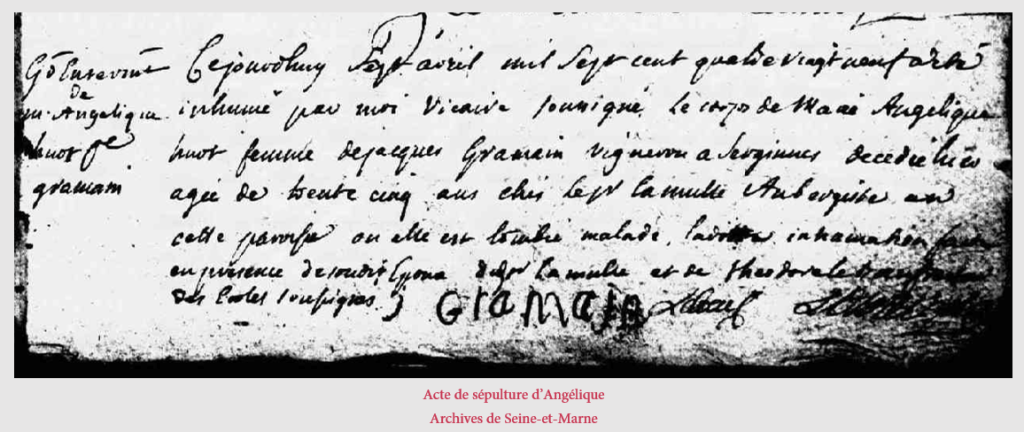 Cejourdhuy Sept avril mil Sept cent quatre vingt neuf a été
de
m. Angelique inhumé par moi Vicaire soussigné le corps de Marie Angelique
huot fe huot femme de jacques Gramain vigneron a Sergines decedée hier
gramain agée de trente cinq ans chés le Sr Lamulle Aubergiste en
cette paroisse ou elle est tombée malade, ladite inhumation faite
en presence dudit Epoux du Sr Lamulle et de theodore
des Ecoles soussignes
GraMain
Acte de sépulture d’Angélique
Archives de Seine-et-Marne